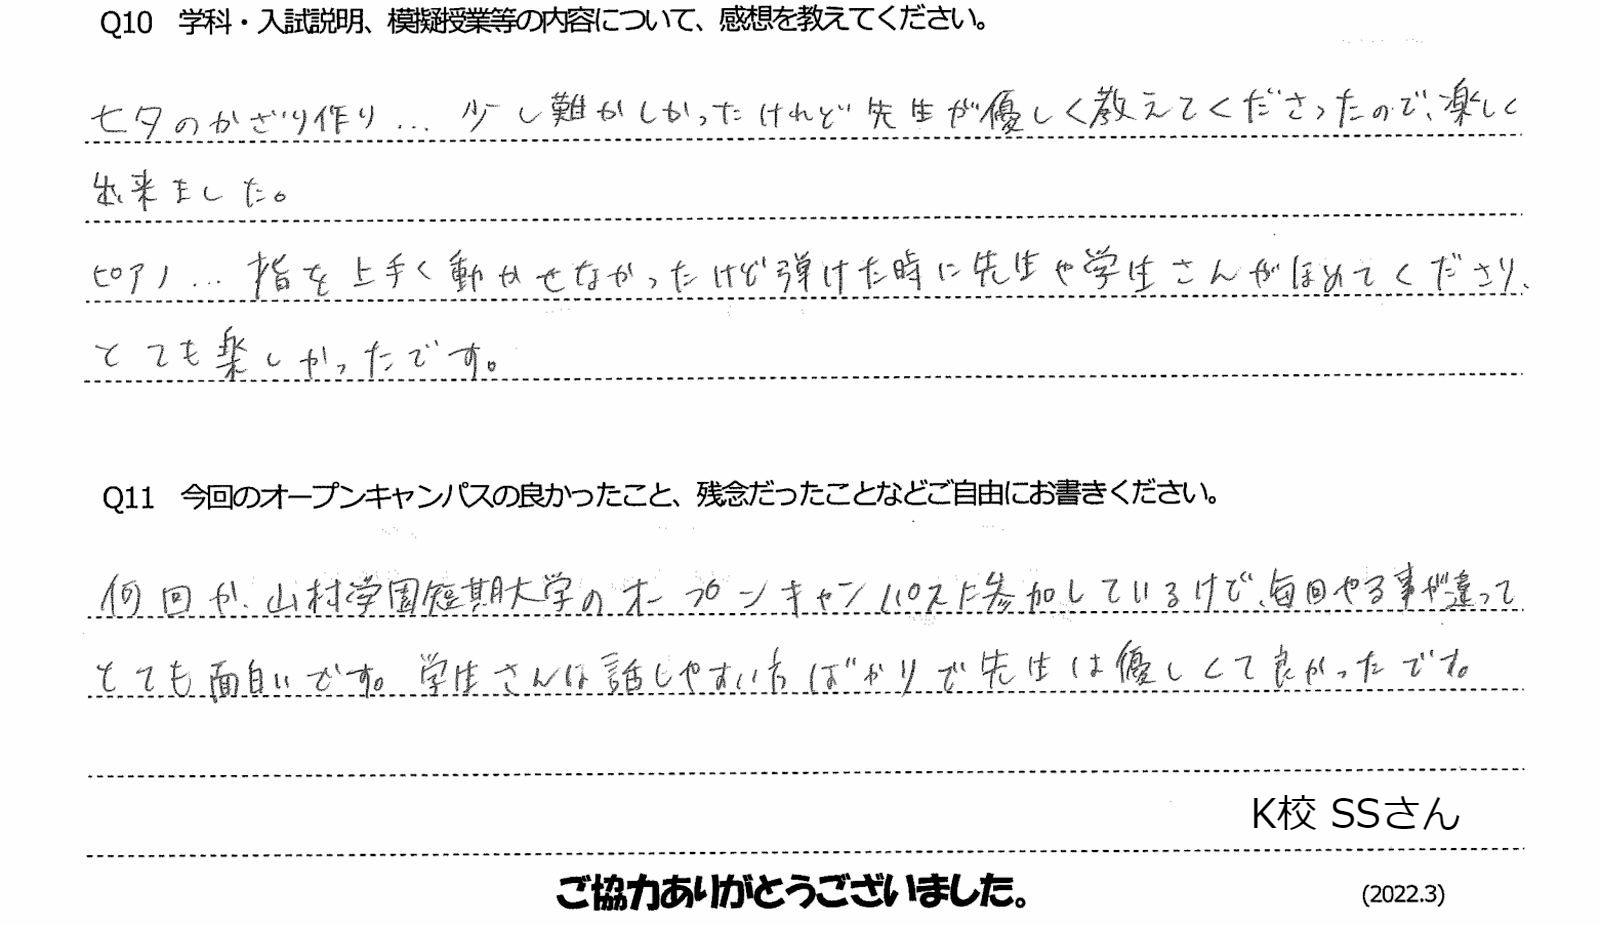 Q10 学科・入試説明、模擬授業等の内容について、感想を教えてください。
七夕のかざり作り... 少し難かしかったけれど先生が優しく教えてくださったので、楽しく
出来ました。
ピアノ... 指を上手く動かせなかったけど弾けた時に先生や学生さんがほめてくださり、
とても楽しかったです。
Q11 今回のオープンキャンパスの良かったこと、残念だったことなどご自由にお書きください。
何回か、山村学園短期大学のオープンキャンパスに参加しているけど、毎回やる事が違って
とても面白いです。学生さんは話しやすい方ばかりで先生は優しくて良かったです。
K校 SSさん
ご協力ありがとうございました。
(2022.3)